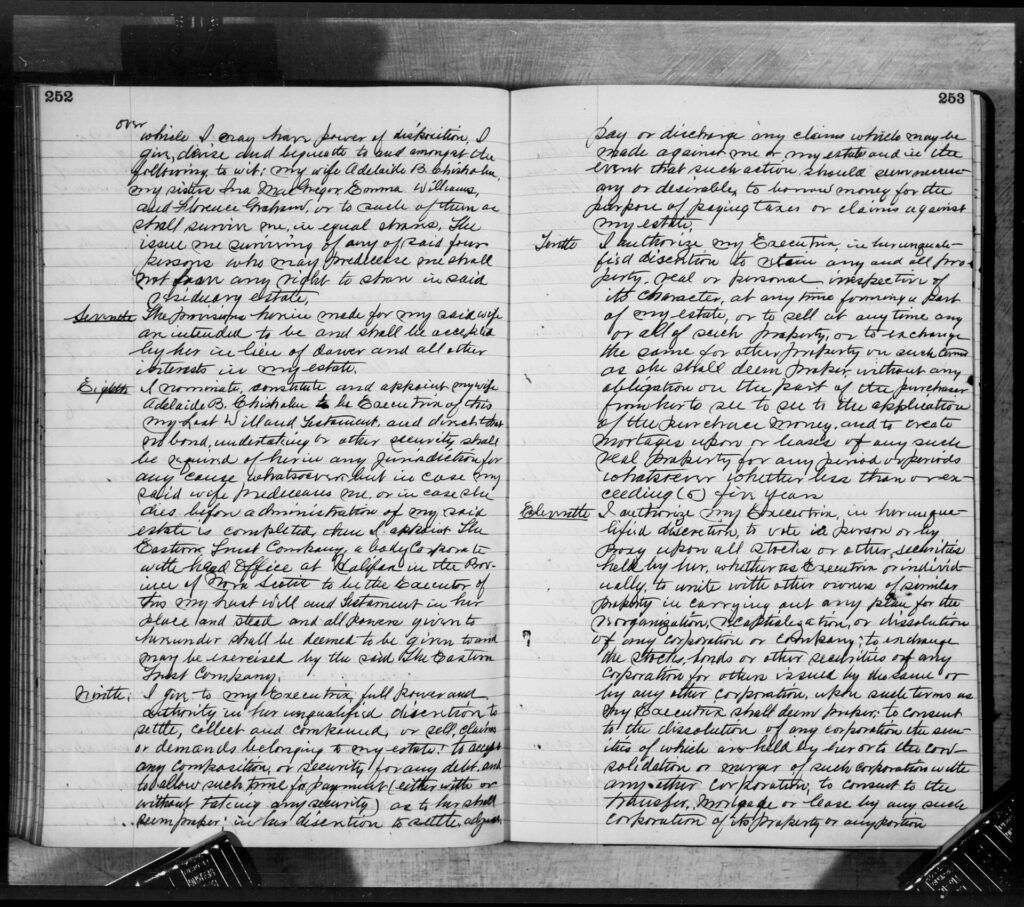 252
over
which I may have power of disposition, I
give, devise and bequeath to and amongst the
following to wit: my wife Adelaide B. Chisholm,
my sisters Ina MacGregor Emma Williams,
and Florence Graham, or to such of them as
shall survive me, in equal shares. The
issue me surviving of any of said four
persons who may predecease me shall
not have any right to share in said
residuary estate.
Seventh The provisions herein made for my said wife
are intended to be and shall be accepted
by her in lieu of dower and all other
interests in my estate.
Eighth I nominate, constitute and appoint my wife
Adelaide B. Chisholm to be Executrix of this
my Last Will and Testament, and direct that
no bond, undertaking or other security shall
be required of her in any jurisdiction for
any cause whatsoever but in case my
said wife predeceases me or in case she
dies before administration of my said
estate is completed, then I appoint The
Eastern Trust Company, a body Corporate
with head Office at Halifax in the Prov-
ince of Nova Scotia to be the Executor of
this my Last will and Testament in her
place and stead and all powers given to
hereunder shall be deemed to be given to and
may be exercised by the said The Eastern
Trust Company.
Ninth: I give to my Executrix full power and
authority in her unqualified discretion to
settle, collect and compound, or sell, claims
or demands belonging to my estate: to accept
any composition or security for any debt and
to allow such time for payment (either with or
without taking any security) as to her shall
seem proper: in her discretion to settle, adjust
253
pay or discharge any claims which may be
made against me or my estate and in the
event that such action should seem necess-
ary or desirable, to borrow money for the
purpose of paying taxes or claims against
my estate.
Tenth I authorize my Executrix, in her unquali-
fied discretion to retain any and all pro-
perty, real or personal irrespective of
its character, at any time forming a part
of my estate, or to sell at any time any
or all of such property, or to exchange
the same for other property on such terms
as she shall deem proper without any
obligation on the part of the purchaser
from her to see to see to the application
of the purchase money, and to create
mortages upon or leases of any such
real property for any period or periods
whatsoever whether less than or ex-
ceeding (5) five years
Eleventh I authorize my Executrix, in her unqua-
lified discretion, to vote in person or by
proxy upon all stocks or other securities
held by her, whether as Executrix or individ-
ually, to unite with other owners of similar
property in carrying out any plan for the
reorganization, recapitalization, or dissolution
of any corporation or company; to exchange
the stocks, bonds or other securities of any
corporation for others issued by the same or
by any other corporation, upon such terms as
my Executrix shall deem proper; to consent
to the dissolution of any corporation the secur-
ities of which are held by her or to the con-
solidation or merger of such corporation with
any other corporation, to consent to the
transfer, mortgage or lease by any such
corporation of its property or any portion